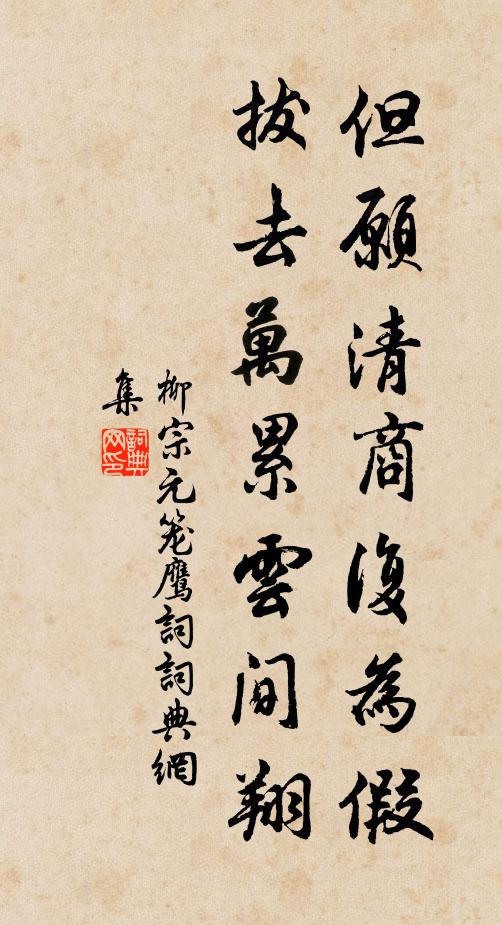 但願清商復為假
拔去萬累雲間翔
柳宗元笼鹰詞詞典網
集
詞典
网印